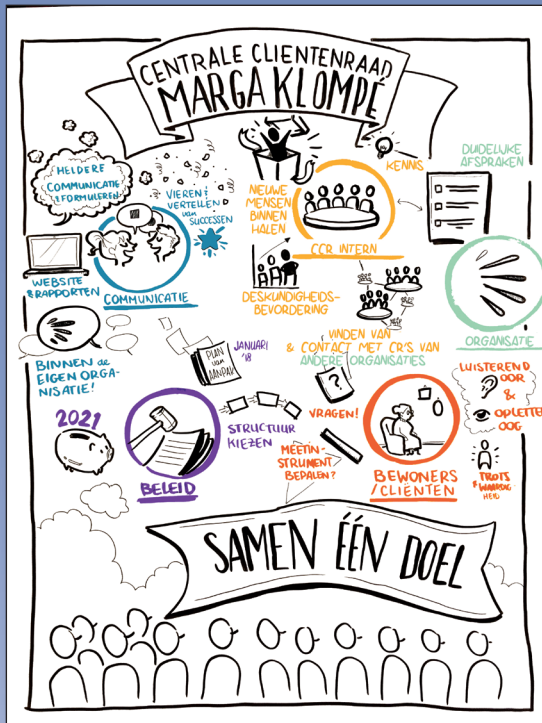 CENTRALE CLIENTENRAAD
MARGA KLOMPÉ
HELDERE
COMMUNICATIE
& FORMULEREN
VIEREN &
VERTELLEN
van
SUCCESSEN
WEBSITE
& RAPPORTEN
COMMUNICATIE
BINNEN de
EIGEN ORGA-
NISATIE!
NIEUWE
MENSEN
BINNEN
HALEN
KENNIS
CCR INTERN
DESKUNDIGHEIDS-
BEVORDERING
VINDEN VAN
& CONTACT MET CR'S VAN
ANDERE ORGANISATIES
DUIDELIJKE
AFSPRAKEN
ORGANISATIE
2021
PLAN
van
AANPAK
JANUARI
'18
STRUCTUUR
KIEZEN
BELEID
?
VRAGEN!
MEETIN-
STRUMENT
BEPALEN?
BEWONERS
/CLIËNTEN
LUISTEREND
OOR
&
OPLETTE
OOG
TROTS
& WAARDIG
HEID
SAMEN ÉÉN DOEL